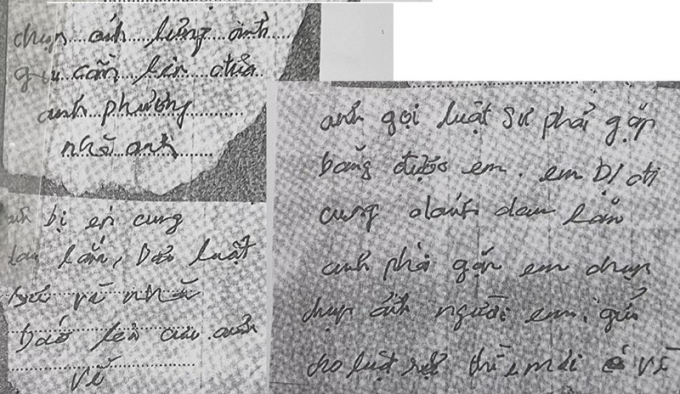 chụp ảnh lưng anh
gửi cầm lên đưa
anh phương
nhà anh
bị ép cung
lắm, bảo luật
sư về nhà
báo lên cứu anh
về
anh gọi luật sư phải gặp
bằng được em. em bị
cung đánh đau lắm
anh phải gặp em chụp
chụp ảnh người em, gửi
cho luật sư thì em mới về